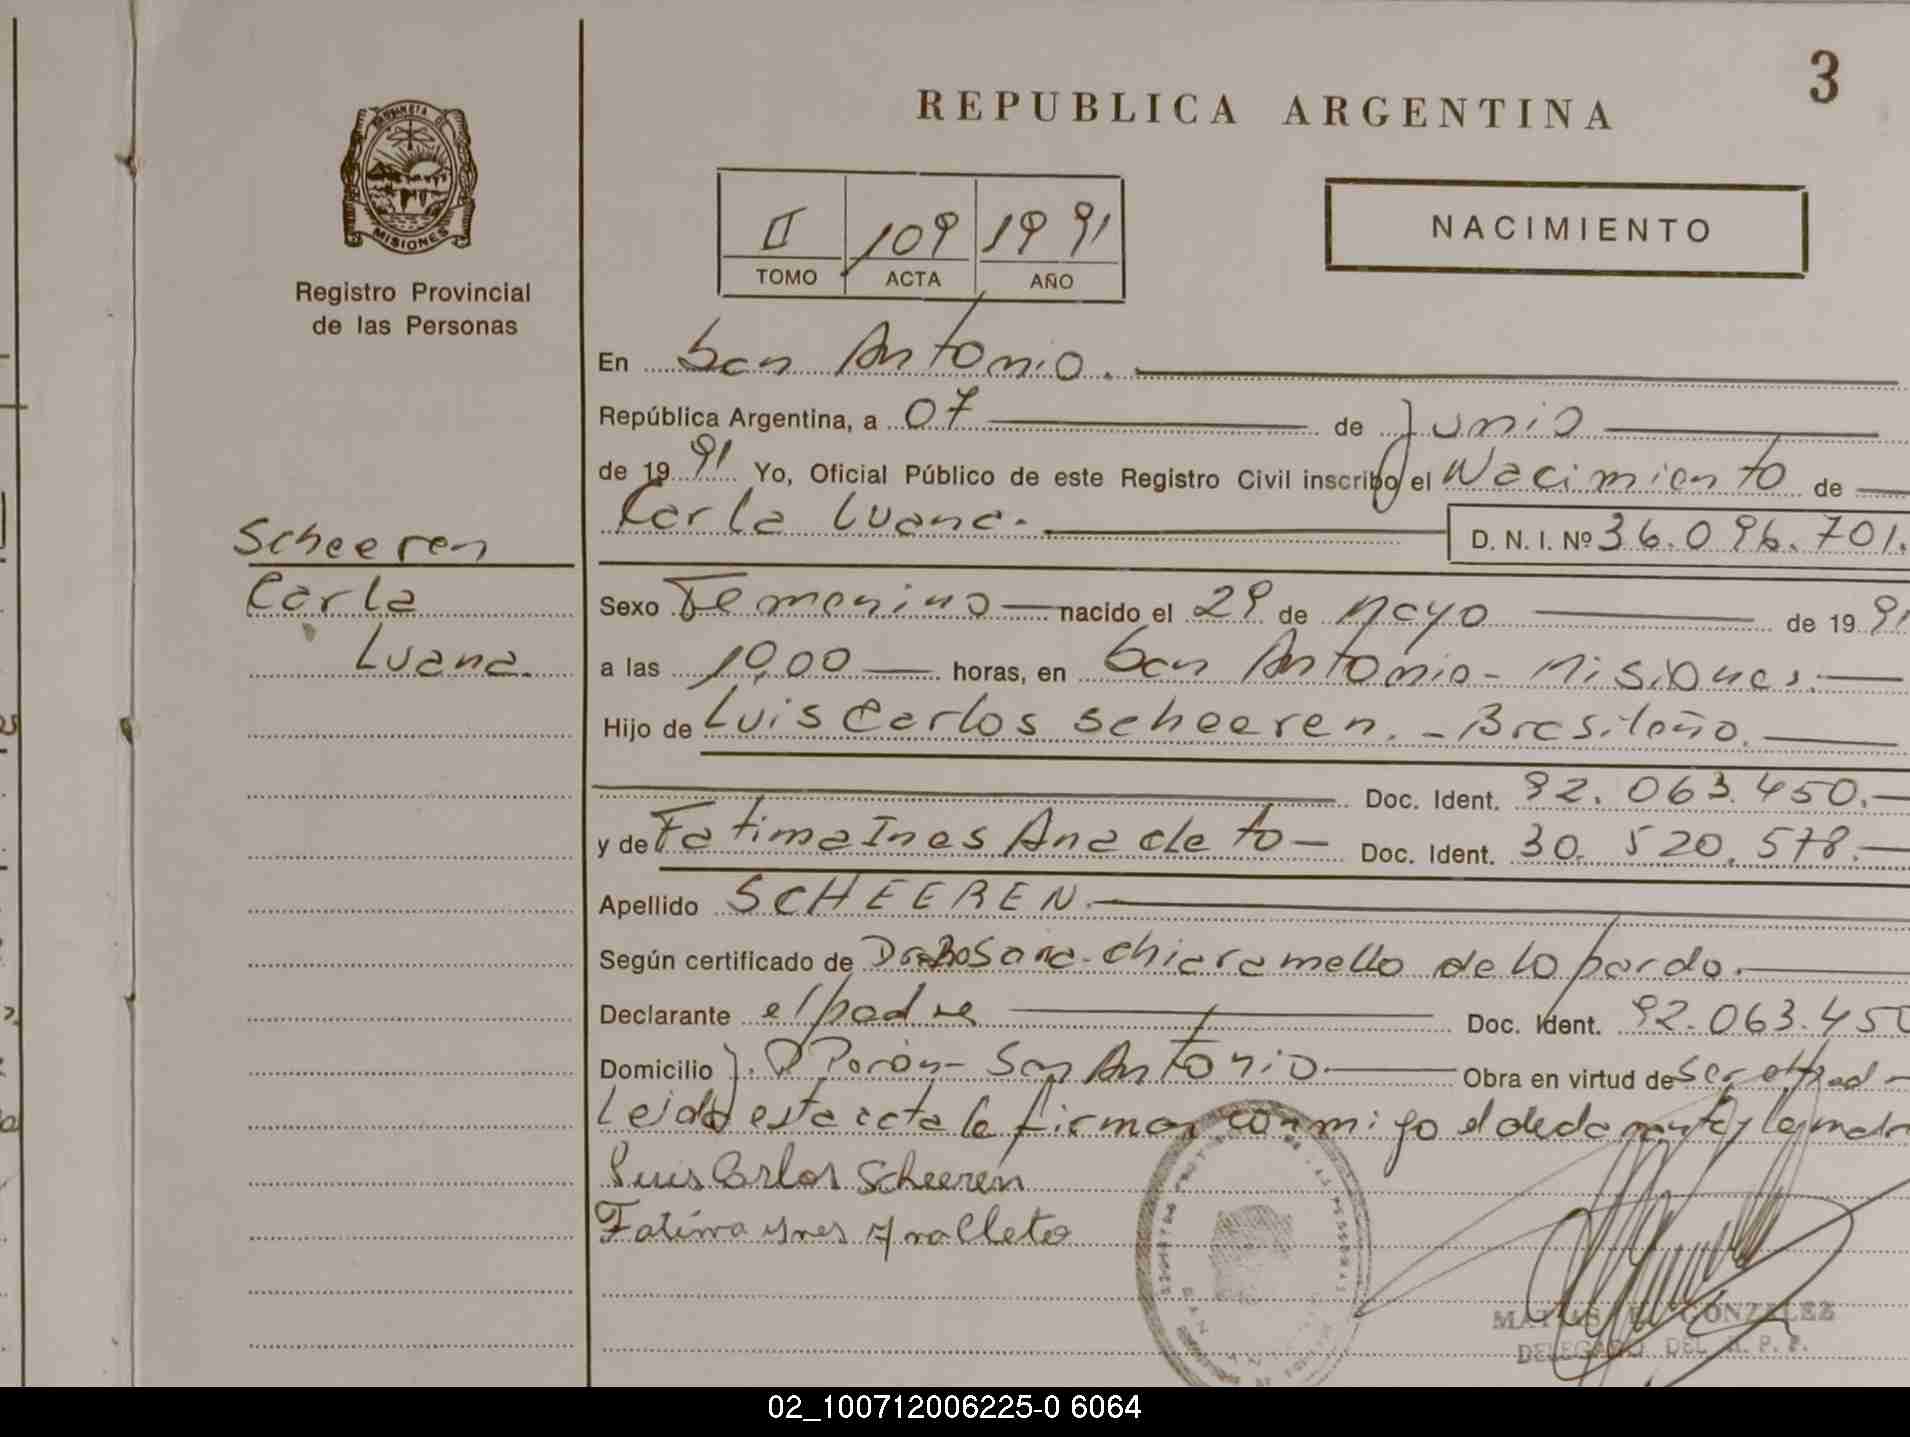 3
REPUBLICA ARGENTINA
PROVINCIA DE
MISIONES
Registro Provincial
de las Personas
II 109 1991
TOMO ACTA AÑO
NACIMIENTO
En San Antonio.
República Argentina, a 07 de Junio
de 1991 Yo, Oficial Público de este Registro Civil inscribo el Nacimiento de
Carla Luana. D. N. I. Nº 36.096.701.
Scheeren
Carla
Luana.
Sexo Femenino nacido el 29 de Mayo de 1991
a las 10,00 horas, en San Antonio - Misiones.
Hijo de Luis Carlos Scheeren. - Brasileño.
Doc. Ident. 92.063.450.
y de Fatima Ines Anacleto Doc. Ident. 30.520.578.
Apellido SCHEEREN.
Según certificado de Dra Rosana Chiaramello de Lopardo.
Declarante el padre Doc. Ident. 92.063.450
Domicilio J. D Perón - San Antonio Obra en virtud de ser el pad
Leida esta acta la firman conmigo el declarante y la madr
Luis Carlos Scheeren
Fatima Ines Analleto
GONZALEZ
DELEGADO DEL R. P. P.
02_100712006225-0 6064